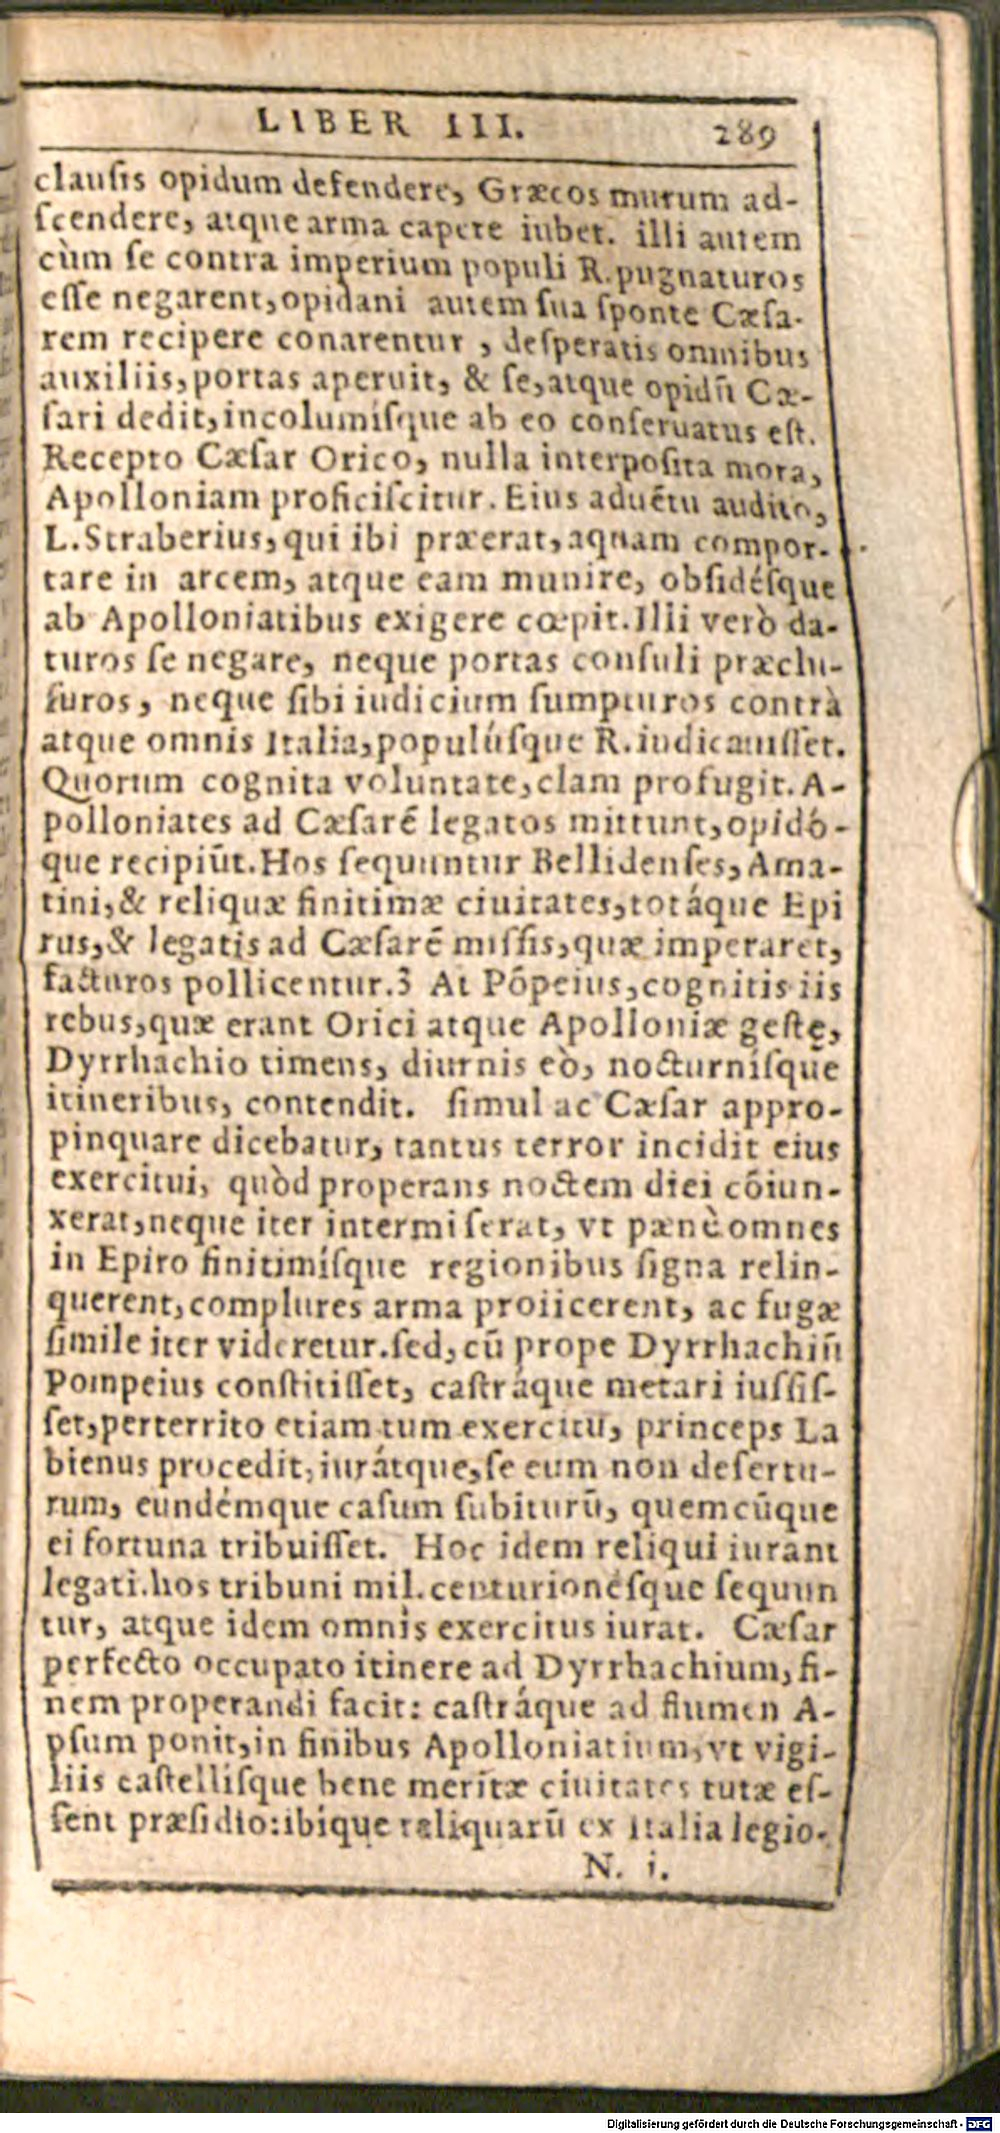 LIBER III. 289
clauſis opidum defendere, Græcos murum ad-
ſcendere, atque arma capere iubet. illi autem
cùm ſe contra imperium populi R. pugnaturos
eſſe negarent, opidani autem ſua ſponte Cæſa-
rem recipere conarentur, deſperatis omnibus
auxiliis, portas aperuit, & ſe, atque opidũ Cæ-
ſari dedit, incolumíſque ab eo conſeruatus eſt.
Recepto Cæſar Orico, nulla interpoſita mora,
Apolloniam proficiſcitur. Eius aduẽtu audito,
L. Straberius, qui ibi præerat, aquam compor-
tare in arcem, atque eam munire, obſidéſque
ab Apolloniatibus exigere cœpit. Illi verò da-
turos ſe negare, neque portas conſuli præclu-
ſuros, neque ſibi iudicium ſumpturos contrà
atque omnis Italia, populúſque R. iudicauiſſet.
Quorum cognita voluntate, clam profugit. A-
polloniates ad Cæſarẽ legatos mittunt, opidó-
que recipiũt. Hos ſequuntur Bellidenſes, Ama-
tini, & reliquæ finitimæ ciuitates, totáque Epi
rus, & legatis ad Cæſarẽ miſſis, quæ imperaret,
facturos pollicentur. 3 At Põpeius, cognitis iis
rebus, quæ erant Orici atque Apolloniæ geſtę,
Dyrrhachio timens, diurnis eò, nocturníſque
itineribus, contendit. ſimul ac Cæſar appro-
pinquare dicebatur, tantus terror incidit eius
exercitui, quòd properans noctem diei cõiun-
xerat, neque iter intermiſerat, vt pænè omnes
in Epiro finitimíſque regionibus ſigna relin-
querent, complures arma proiicerent, ac fugæ
ſimile iter videretur. ſed, cũ prope Dyrrhachiũ
Pompeius conſtitiſſet, caſtráque metari iuſſiſ-
ſet, perterrito etiam tum exercitu, princeps La
bienus procedit, iurátque, ſe eum non deſertu-
rum, eundémque caſum ſubiturũ, quemcũque
ei fortuna tribuiſſet. Hoc idem reliqui iurant
legati. hos tribuni mil. centurionéſque ſequun
tur, atque idem omnis exercitus iurat. Cæſar
perfecto occupato itinere ad Dyrrhachium, fi-
nem properandi facit: caſtráque ad flumen A-
pſum ponit, in finibus Apolloniatium, vt vigi-
liis caſtelliſque bene meritæ ciuitates tutæ eſ-
ſent præſidio: ibique reliquarũ ex Italia legio-
N. i.
Digitalisierung gefördert durch die Deutsche Forschungsgemeinschaft - DFG